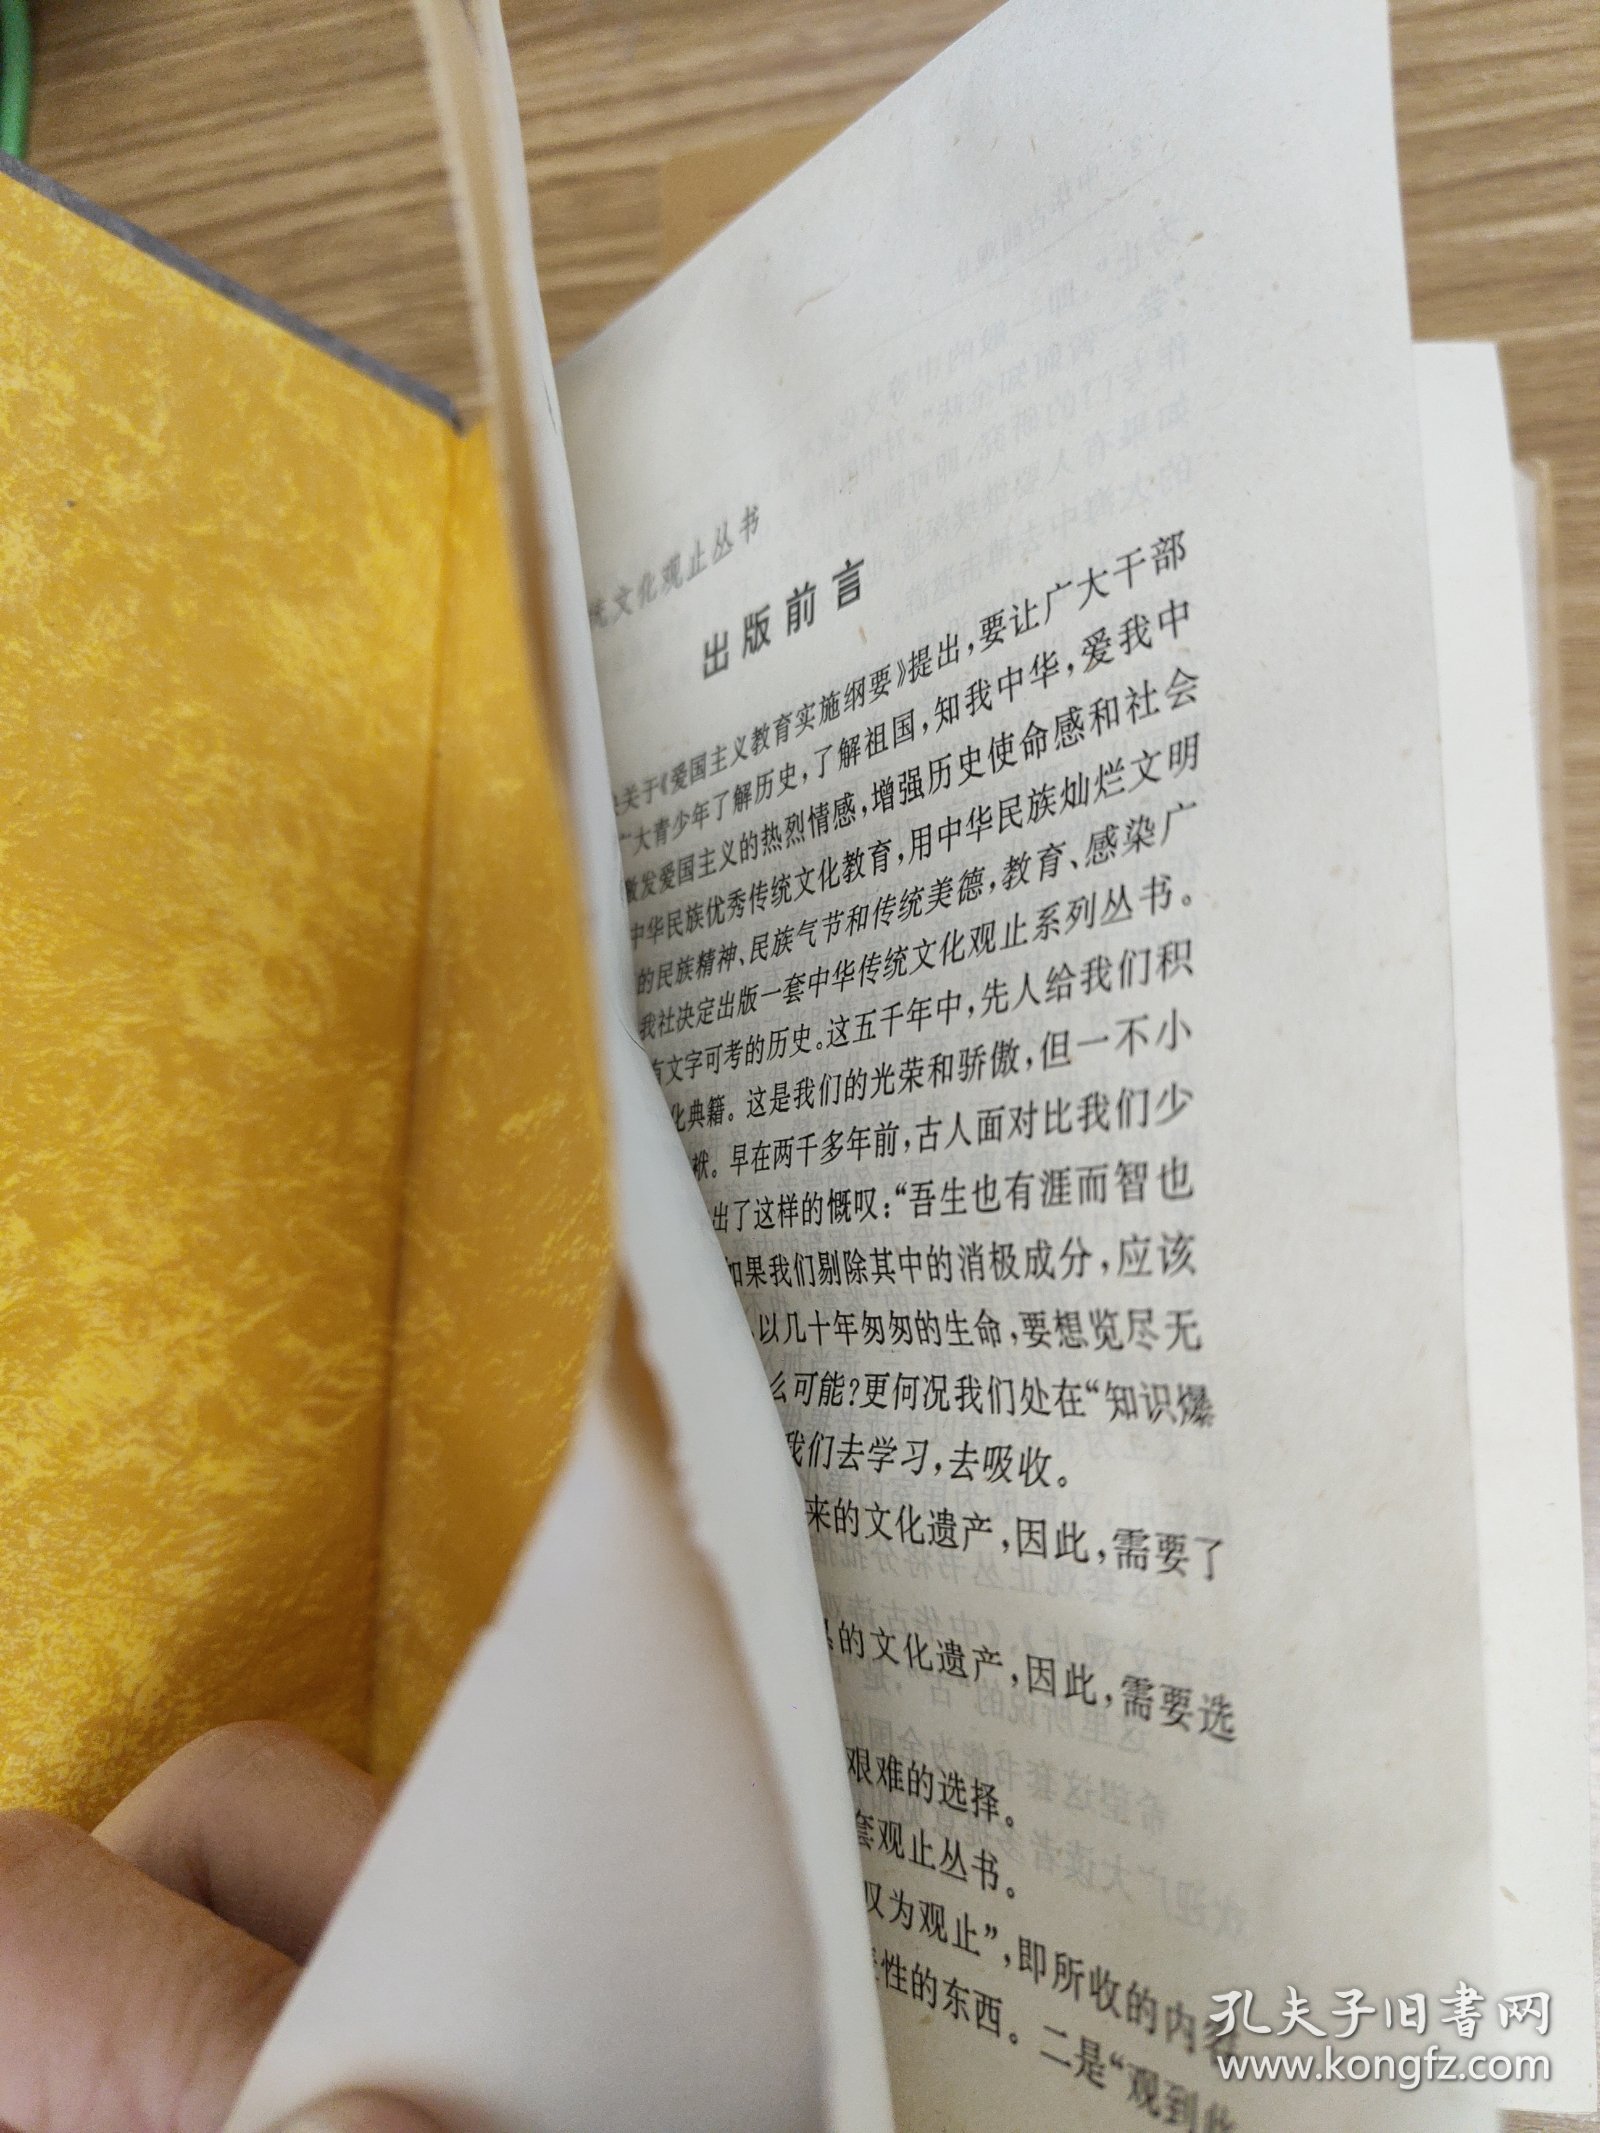 统文化观止丛书
出版前言
关于《爱国主义教育实施纲要》提出，要让广大干部
大青少年了解历史，了解祖国，知我中华，爱我中
激发爱国主义的热烈情感，增强历史使命感和社会
中华民族优秀传统文化教育，用中华民族灿烂文明
的民族精神、民族气节和传统美德，教育、感染广
我社决定出版一套中华传统文化观止系列丛书。
有文字可考的历史。这五千年中，先人给我们积
化典籍。这是我们的光荣和骄傲，但一不小
袱。早在两千多年前，古人面对比我们少
出了这样的慨叹：“吾生也有涯而智也
如果我们剔除其中的消极成分，应该
以几十年匆匆的生命，要想览尽无
么可能？更何况我们处在“知识爆
我们去学习，去吸收。
来的文化遗产，因此，需要了
的文化遗产，因此，需要选
艰难的选择。
套观止丛书。
叹为观止”，即所收的内容
性的东西。二是“观到此
孔夫子旧书网
www.kongfz.com